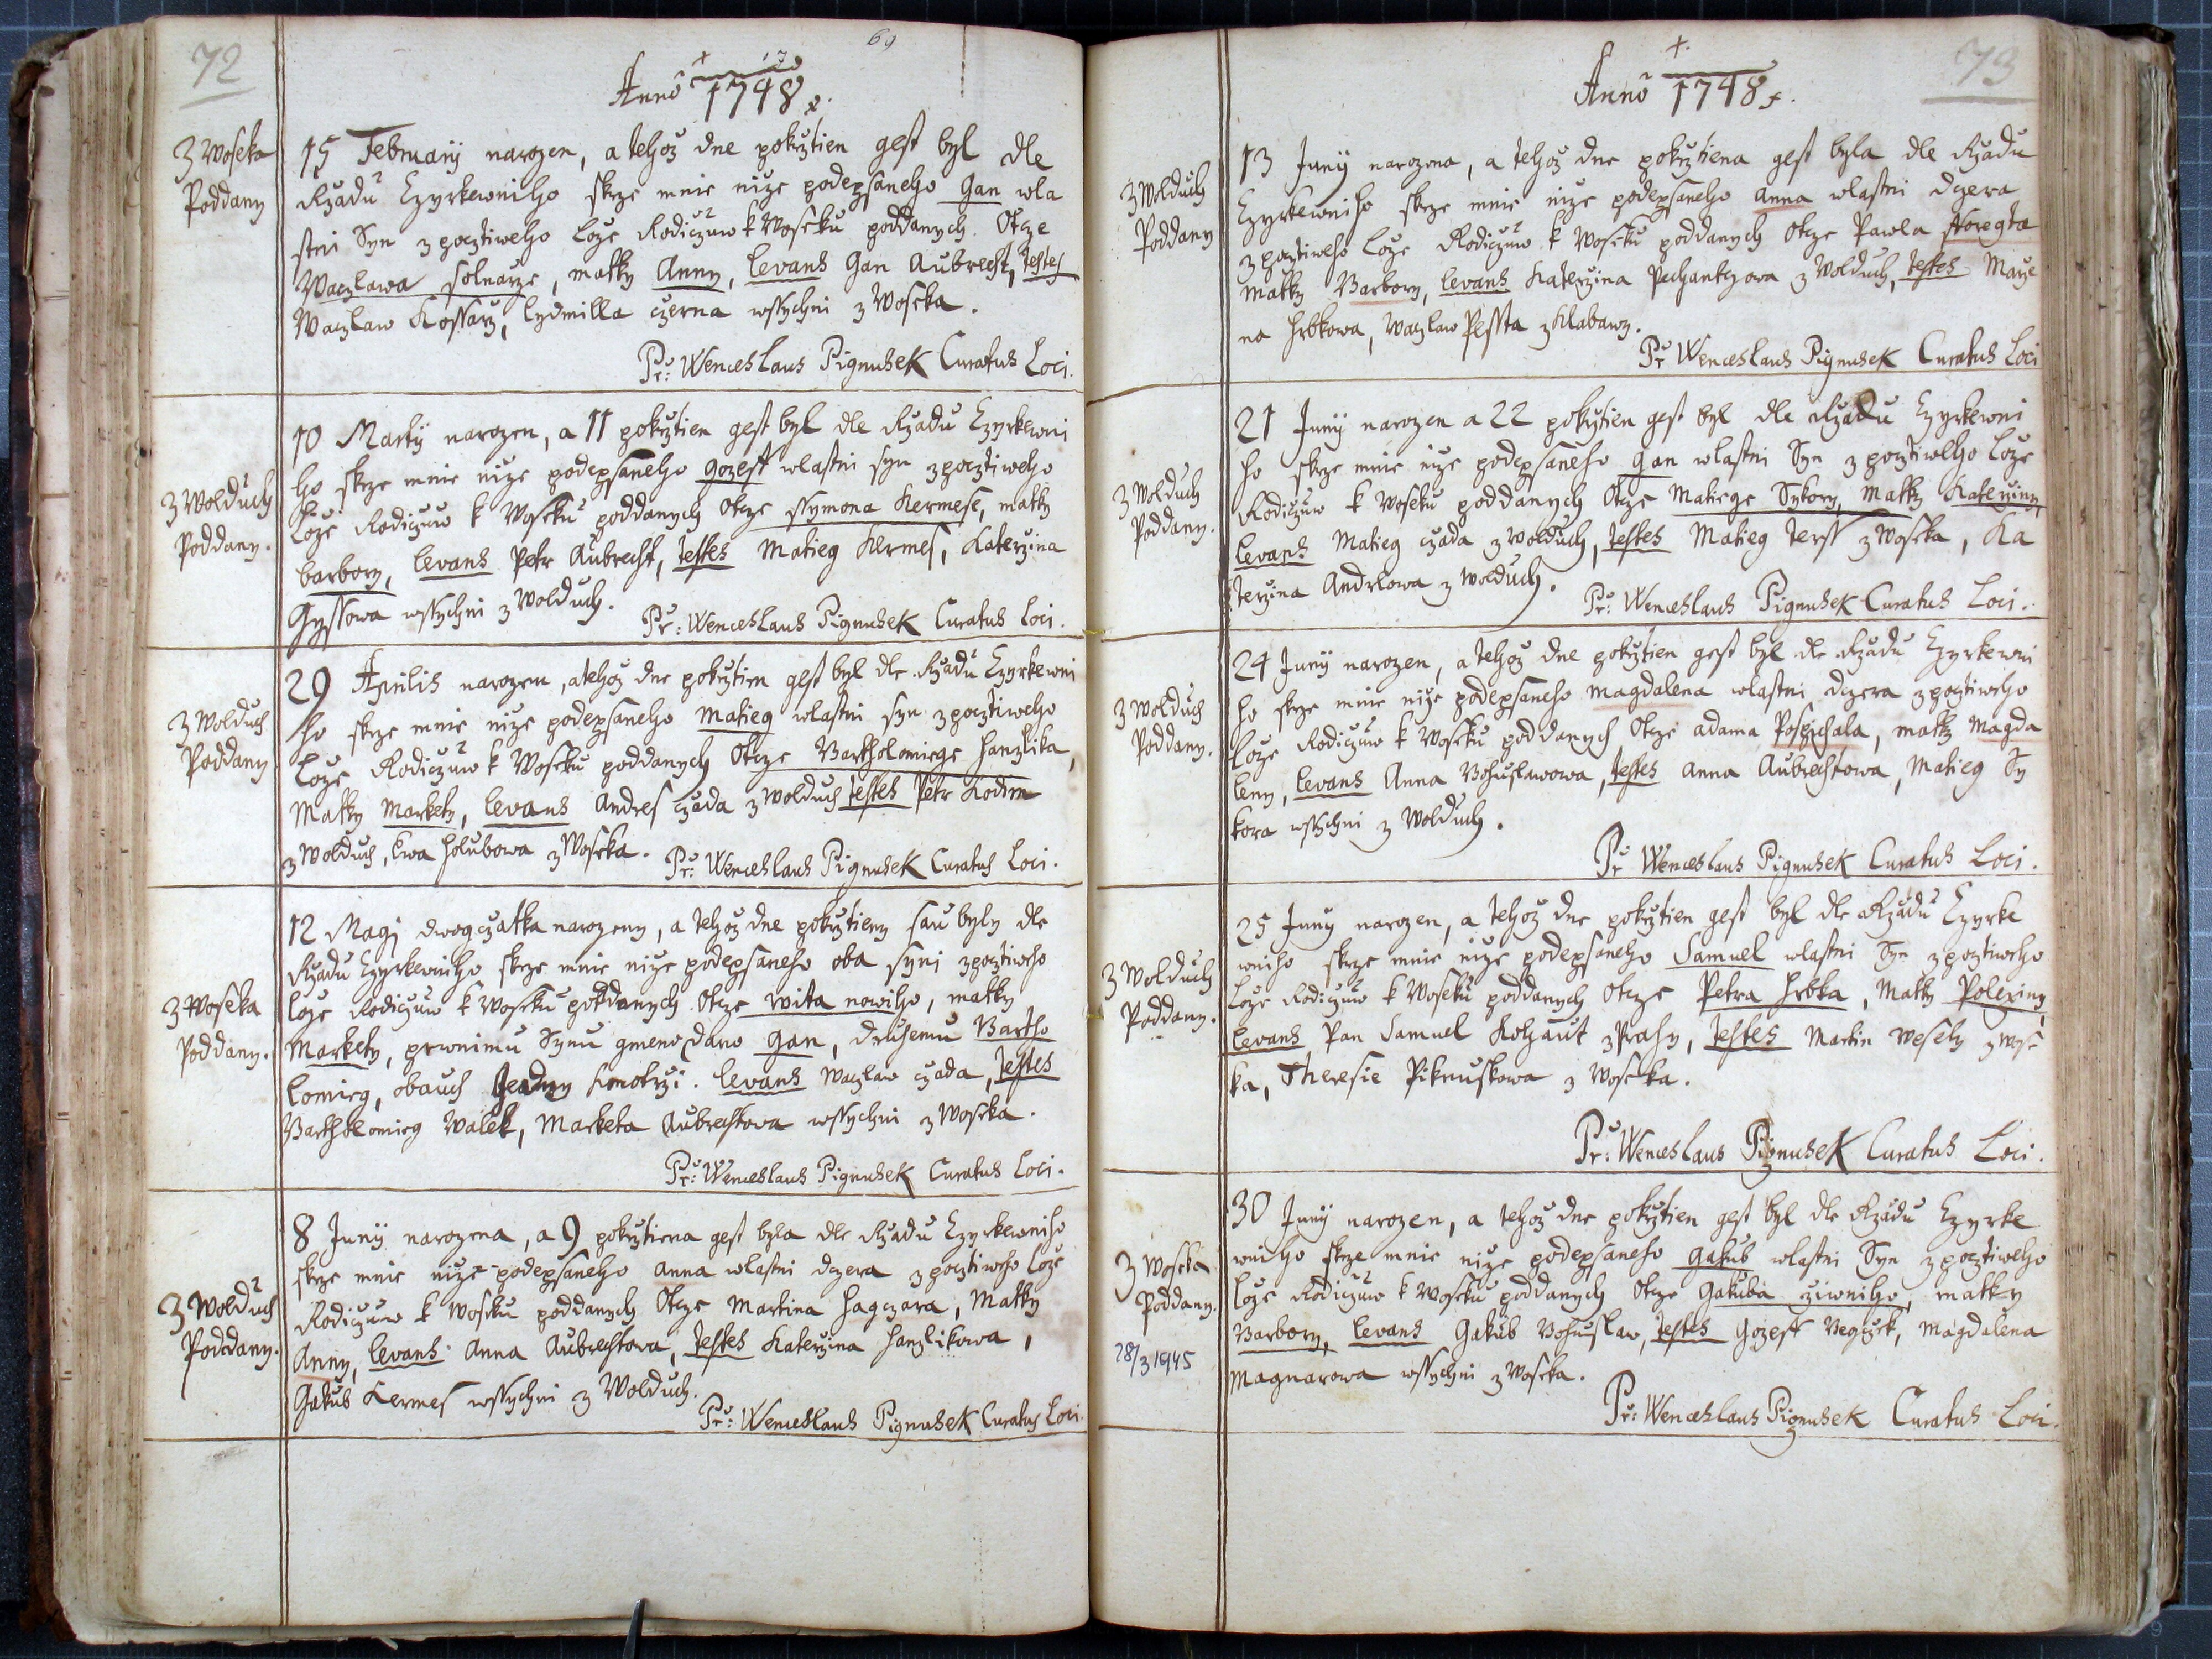 72
69
Anno 1748
Z Woseka
Poddany
15 Februarij narozen, a tehoz dne pokrztien gest byl dle
Rzadu Czyrkewniho skrze mnie nize podepsaneho Gan wla
stni Syn z pocztiweho Loze Rodiczuw k Woseku poddanych. Otcze
Waczlawa solnarze, matky Anny, levans Gan Aubrecht, testes
Waczlaw Kossarz, Lydmilla czerna wssychni z Woseka.
Pr: Wenceslaus Pignusek Curatus Loci.
Z Wolduch
Poddany.
10 Martij narozen, a 11 pokrztien gest byl dle Rzadu Czyrkewni
ho skrze mnie nize podepsaneho Gozeff wlastni syn z pocztiweho
Loze Rodiczuw k Woseku poddanych Otcze Ssymona Kermese, matky
barbory, levans Petr Aubrecht, testes Matieg Kermes, Katerzina
Gyssowa wssychni z Wolduch.
Pr: Wenceslaus Pignusek Curatus Loci.
Z Wolduch
Poddany
29 Aprilis narozen, a tehoz dne pokrztien gest byl dle Rzadu Czyrkewni
ho skrze mnie nize podepsaneho Matieg wlastni syn z pocztiweho
Loze Rodiczuw k Woseku poddanych Otcze Bartholomiege Hanzlika,
Matky Markety, levans Andres czada z Wolduch testes Petr Kodim
z Wolduch, Ewa Holubowa z Woseka.
Pr: Wenceslaus Pignusek Curatus Loci.
Z Woseka
Poddany.
12 Magi dwogczatka narozeny, a tehoz dne pokrztieny sau byly dle
Rzadu Czyrkewniho skrze mnie nize podepsaneho oba syni z pocztiweho
loze Rodiczuw k Woseku poddanych Otcze wita nowiho, matky
Markety, prwnimu Synu gmeno dano Gan, druhemu Bartho
lomieg, obauch Jeadny Kmotrzi. levans Waczlaw czada, testes
Bartholomieg Walek, Marketa Aubrechtowa wssychni z Woseka.
Pr: Wenceslaus Pignusek Curatus Loci.
Z Wolduch
Poddany.
8 Junij narozena, a 9 pokrztiena gest byla dle Rzadu Czyrkewniho
skrze mnie nize podepsaneho Anna wlastni dczera z pocztiweho Loze
Rodiczuw k Woseku poddanych Otcze Martina Hagczara, Matky
Anny, levans Anna Aubrechtowa, testes Katerzina Hanzlikowa,
Gakub Kermes wssychni z Wolduch.
Pr: Wenceslaus Pignusek Curatus Loci.
73
Anno 1748
Z Wolduch
Poddany
13 Junij narozena, a tehoz dne pokrztiena gest byla dle Rzadu
Czyrkewniho skrze mnie nize podepsaneho Anna wlastni dczera
z pocztiweho Loze Rodiczuw k Woseku poddanych Otcze Pawla
Matky Barbory, levans Katerzina Pechantczowa z Wolduch, testes Marye
na Hrbkowa, Waczlaw Pessta z Klabawy.
Pr Wenceslaus Pignusek Curatus Loci
Z Wolduch
Poddany.
21 Junij narozen a 22 pokrztien gest byl dle Rzadu Czyrkewni
ho skrze mnie nize podepsaneho Gan wlastni Syn z pocztiweho Loze
Rodiczuw k Woseku poddanych Otcze Matiege Sykory, Matky Katerziny,
levans Matieg czada z Wolduch, testes Matieg Terss z Woseka, Ka
terzina Andrlowa z Wolduch.
Pr: Wenceslaus Pignusek Curatus Loci.
Z Wolduch
Poddany.
24 Junij narozen, a tehoz dne pokrztien gest byl dle Rzadu Czyrkewni
ho skrze mnie nize podepsaneho Magdalena wlastni dczera z pocztiweho
Loze Rodiczuw k Woseku poddanych Otcze Adama Pospichala, matky Magda
leny, levans Anna Bohuslawowa, testes Anna Aubrechtowa, Matieg Sy
kora wssychni z Wolduch.
Pr Wenceslaus Pignusek Curatus Loci.
Z Wolduch
Poddany.
25 Junij narozen, a tehoz dne pokrztien gest byl dle Rzadu Czyrke
wniho skrze mnie nize podepsaneho Samuel wlastni Syn z pocztiweho
Loze Rodiczuw k Woseku poddanych Otcze Petra Hrbka, Matky Polexiny,
levans Pan Samuel Kohaut z Prahy, testes Martin Wesely z Wose
ka, Theresie Pikruskowa z Woseka.
Pr: Wenceslaus Pignusek Curatus Loci.
Z Woseka
Poddany.
28/3 1945
30 Junij narozen, a tehoz dne pokrztien gest byl dle Rzadu Czyrke
wniho skrze mnie nize podepsaneho Gakub wlastni Syn z pocztiweho
Loze Rodiczuw k Woseku poddanych Otcze Gakuba cziwniho, matky
Barbory, levans Gakub Bohuslaw, testes Gozeff Uegczek, Magdalena
Magnarowa wssychni z Woseka.
Pr: Wenceslaus Pignusek Curatus Loci.